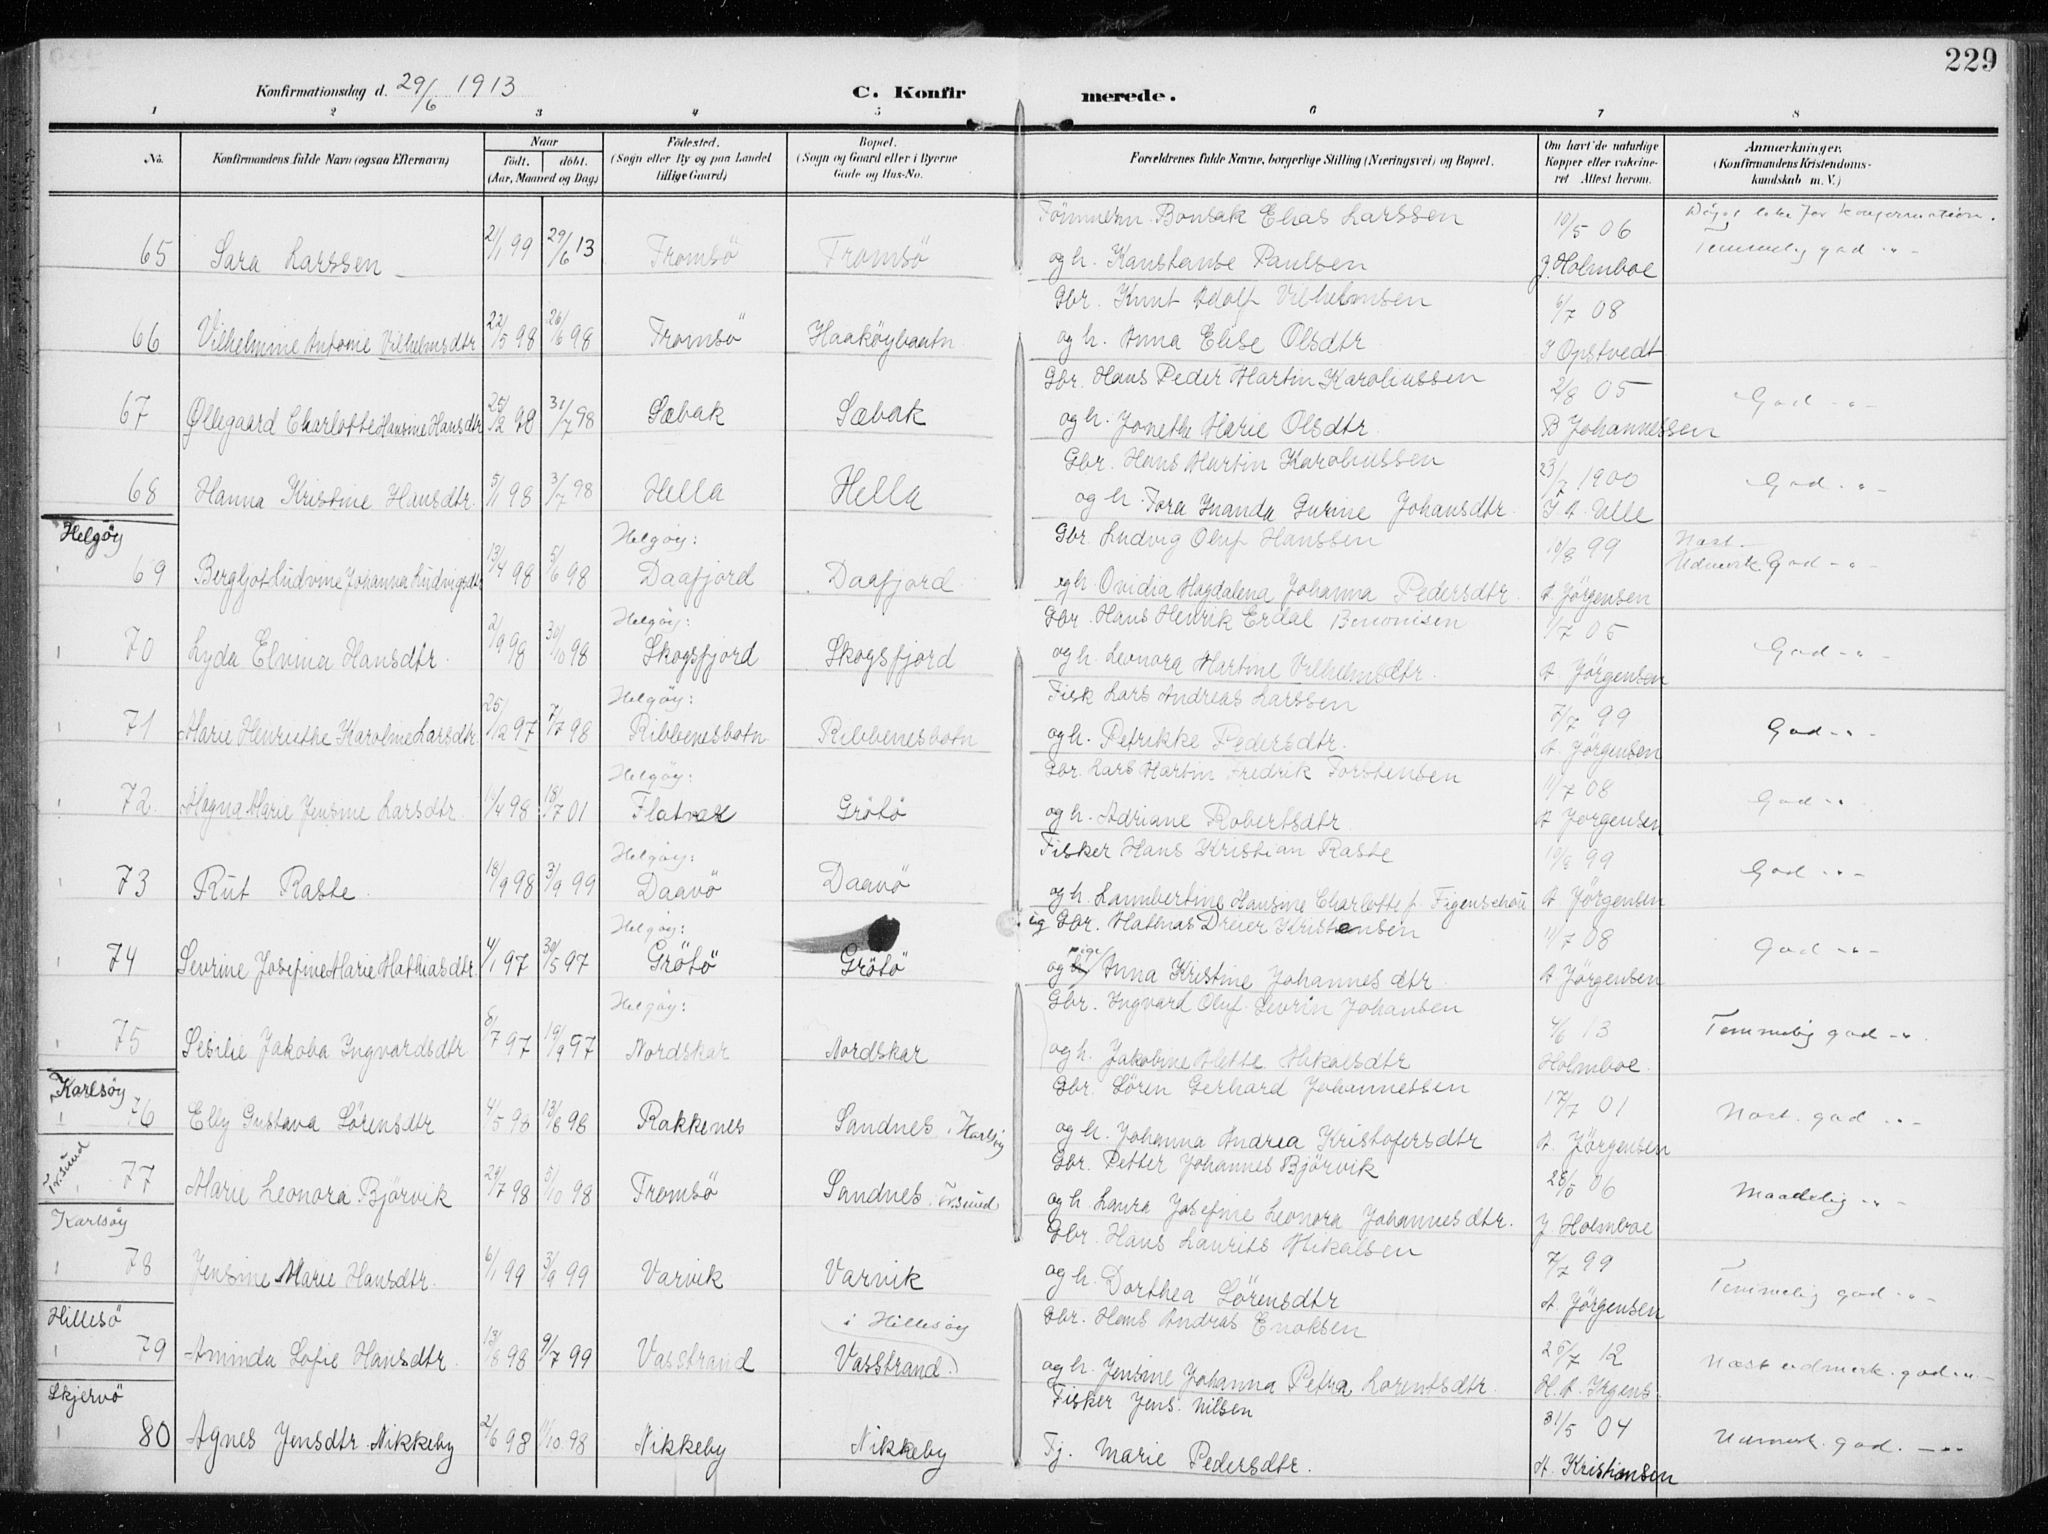 229
Konfirmationsdag d. 29/6 1913
C. Konfirmerede.
1 2 3 4 5 6 7 8
No.
Konfirmandens fulde Navn (ogsaa Efternavn)
Naar
født. døbt.
(Aar, Maaned og Dag)
Fødested.
(Sogn eller By og paa Landet
tillige Gaard)
Bopæl.
(Sogn og Gaard eller i Byerne
Gade og Hus-No.
Forældrenes fulde Navne, borgerlige Stilling (Næringsvei) og Bopæl.
Om havt de naturlige
Kopper eller vakcine-
ret Attest herom.
Anmærkninger.
(Konfirmandens Kristendoms-
kundskab m. V.)
Tömmerm. Bonsak Elias Larssen
65 Sara Larssen 2/1 99 29/6 13 Tromsö Tromsö
og h. Konstanse Paulsen
10/5 06
J. Holmboe
Döpt före før konfirmation.
Temmelig god
Gbr. Knut Adolf Vilhelmsen
66 Vilhelmine Antonie Vilhelmsdtr 22/5 98 26/6 98 Tromsö Haaköybaatn
og h. Anna Elise Olsdtr
6/7 08
J Opstvedt
Gbr. Hans Peder Martin Karoliussen
67 Ollegaard Charlotte Hansine Hansdtr 25/2 98 31/7 98 Sæbak Sæbak
og h. Jonethe Marie Olsdtr.
2/8 05
B Johannessen
God
Gbr. Hans Martin Karoliussen
68 Hanna Kristine Hansdtr. 5/1 98 3/7 98 Hella Hella
og h. Tora Inanda Gurine Johansdtr.
23/7 1900
J A. Ulle
God
Helgöy
Gbr. Ludvig Oluf Hanssen
69 Bergljot Ludvine Johanna Ludvigsdtr 13/4 98 5/6 98 Helgöy: Daafjord Daafjord
og h. Ovidia Magdalena Johanna Pedersdtr.
10/8 99
A Jörgensen
Næst.
Udmerk God
Gbr. Hans Henrik Erdal Benonisen
70 Lyda Elvina Hansdtr. 2/9 98 30/10 98 Helgöy: Skogsfjord Skogsfjord
og h. Leonora Martine Vilhelmsdtr.
1/7 05
A Jörgensen
God
Fisk Lars Andreas Larssen
71 Marie Henriethe Karoline Larsdtr. 25/12 97 7/7 98 Helgöy: Ribbenesbotn Ribbenesbotn
og h. Petrikke Pedersdtr.
7/7 99
A. Jörgensen
God
Gbr. Lars Martin Fredrik Torstensen
72. Magna Marie Jensine Larsdtr. 14/4 98 18/7 01 Helgöy: Flatvær Grötö
og h. Adriane Robertsdtr
11/7 08
A Jörgensen
God
Fisker Hans Kristian Raste
73 Rut Raste. 18/9 98 3/9 99 Helgöy: Daavö Daavö
og h. Lambertine Hansine Charlotte f. Figenschou
10/8 99
A Jörgensen
God
ug Gbr. Mathias Dreier Kristensen
74 Sevrine Josefine Marie Mathiasdtr. 4/1 97 30/5 97 Helgöy: Grötö Grötö
og pige Anna Kristine Johannesdtr.
11/7 08
A Jörgensen
God
Gbr. Ingvard Oluf Sevrin Johansen
75 Sesilie Jakoba Ingvardsdtr 8/7 97 19/9 97 Helgöy: Nordskar Nordskar
og h. Jakobine Mette Mikalsdtr
4/6 13
Holmboe.
Temmelig god
Karlsöy
Gbr. Sören Gerhard Johannessen
76 Elly Gustava Sörensdtr 4/5 98 13/8 98 Rakkenes Sandnes i Karlsöy
og h. Johanna Andrea Kristofersdtr
17/7 01
A. Jörgensen
Næst. god
Tr.sund
Gbr. Petter Johannes Björvik
77 Marie Leonora Björvik 29/7 98 5/10 98 Tromsö Sandnes. Tr.sund
og h Laura Josefine Leonora Johannesdtr.
J Holmboe
Maadelig
Karlsöy
Gbr. Hans Laurits Mikalsen
78 Jensine Marie Hansdtr. 6/1 99 3/9 99 Varvik Varvik
og h. Dorthea Sörensdtr
7/7 99
A. Jörgensen
Temmelig god
Hillesö
Gbr. Hans Andras Enoksen
79 Aminda Sofie Hansdtr. 13/8 98 9/7 99 Vasstrand i Hillesöy Vasstrand.
og h. Jensine Johanna Petra Lorentsdtr.
25/7 12
H. A. Irgens.
Næst udmerk. god
Skjervö
Fisker Jens. Nilsen
80 Agnes Jensdtr. Nikkeby 2/6 98 11/10 98 Nikkeby Nikkeby
Fj. Marie Pedersdtr.
31/5 04
A. Kristiansen
Udmerk. god.